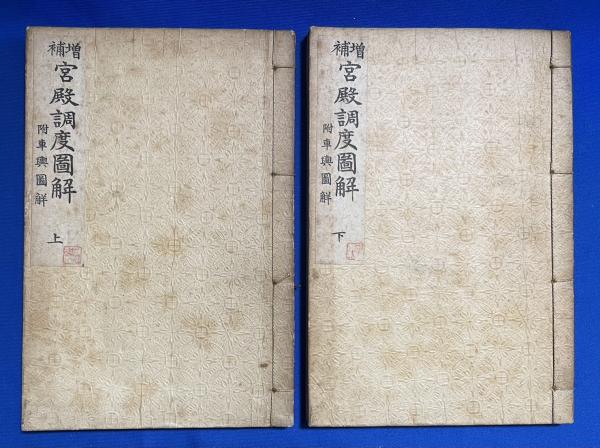 増補
宮殿調度圖解
附車輿圖解
上
増補
宮殿調度圖解
附車輿圖解
下